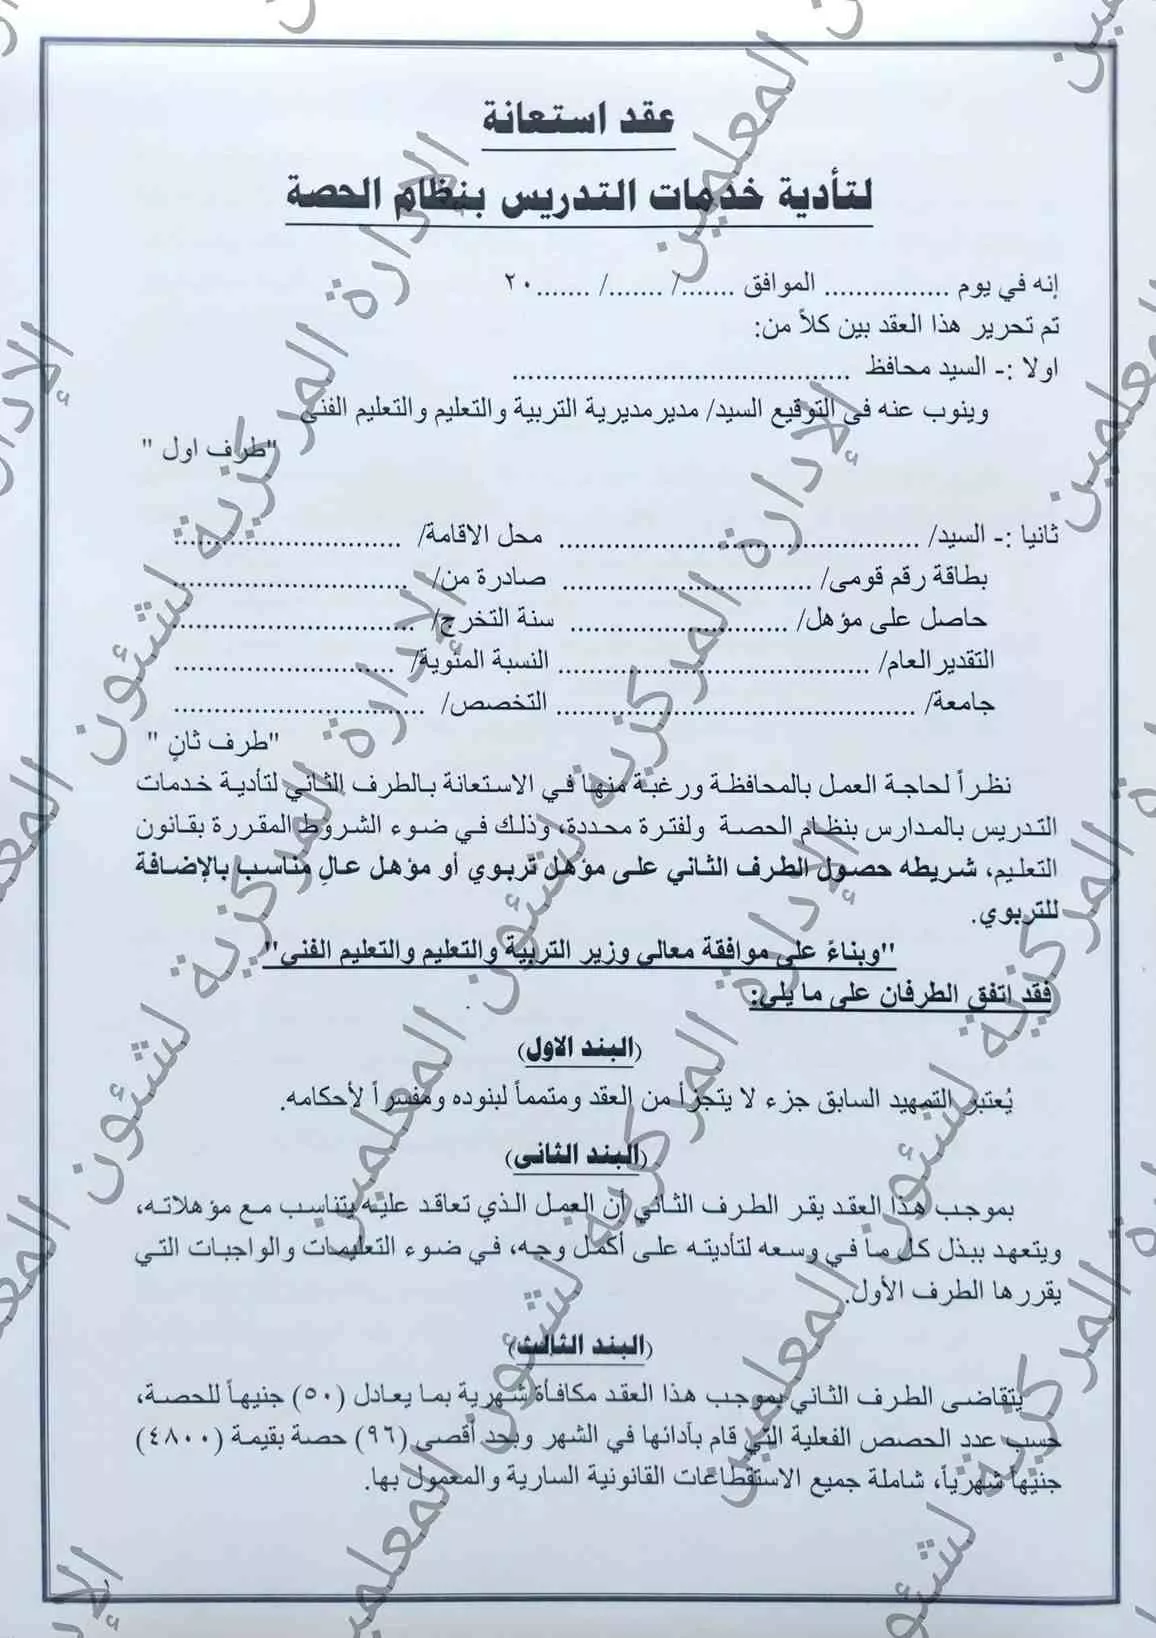 عقد استعانة
لتأدية خدمات التدريس بنظام الحصة
إنه في يوم ................ الموافق ......./ ......./ .......٢٠
تم تحرير هذا العقد بين كلاً من:
اولا :- السيد محافظ ............................................
وينوب عنه فى التوقيع السيد/ مدير مديرية التربية والتعليم والتعليم الفنى
"طرف اول "
ثانيا :- السيد/ .............................................. محل الاقامة/ .............................
بطاقة رقم قومى/ ................................ صادرة من/ ..............................
حاصل على مؤهل/ ............................ سنة التخرج/ ...............................
التقدير العام/ ........................................ النسبة المئوية/ ............................
جامعة/ .............................................. التخصص/ ................................
"طرف ثانٍ "
نظراً لحاجة العمل بالمحافظة ورغبة منها في الاستعانة بالطرف الثاني لتأدية خدمات
التدريس بالمدارس بنظام الحصة ولفترة محددة، وذلك في ضوء الشروط المقررة بقانون
التعليم، شريطه حصول الطرف الثاني على مؤهل تربوي أو مؤهل عالِ مناسب بالإضافة
للتربوي.
"وبناءً على موافقة معالي وزير التربية والتعليم والتعليم الفني"
فقد اتفق الطرفان على ما يلي:
(البند الاول)
يُعتبر التمهيد السابق جزء لا يتجزأ من العقد ومتمماً لبنوده ومفسراً لأحكامه.
(البند الثانى)
بموجب هذا العقد يقر الطرف الثاني أن العمل الذي تعاقد عليه يتناسب مع مؤهلاته،
ويتعهد ببذل كل ما في وسعه لتأديته على أكمل وجه، في ضوء التعليمات والواجبات التي
يقررها الطرف الأول.
(البند الثالث)
يتقاضى الطرف الثاني بموجب هذا العقد مكافأة شهرية بما يعادل (٥٠) جنيهاً للحصة،
حسب عدد الحصص الفعلية التي قام بآدائها في الشهر وبحد أقصى (٩٦) حصة بقيمة (٤٨٠٠)
جنيهاً شهرياً، شاملة جميع الاستقطاعات القانونية السارية والمعمول بها.
الإدارة المركزية لشئون المعلمين
الإدارة المركزية لشئون المعلمين
الإدارة المركزية لشئون المعلمين